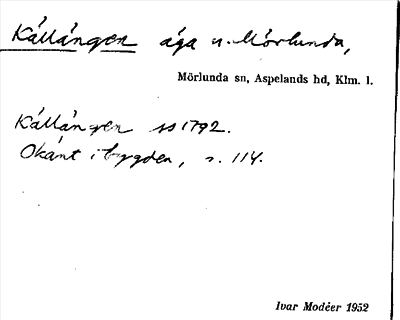 Källängen äga n. Mörlunda,
Mörlunda sn, Aspelands hd, Klm. l.
Källängen ss 1792.
Okänt i bygden, s. 114.
Ivar Modéer 1952